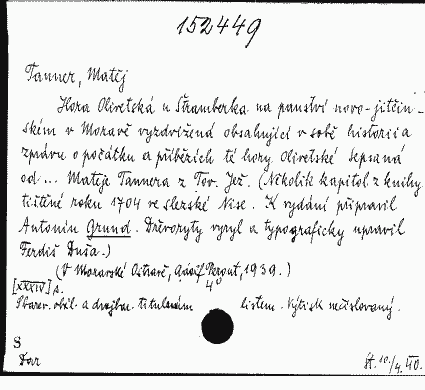 152449
Tanner, Matěj
Hora Olivetská u Štramberka na panství novo-jitčin-
ském v Moravě vyzdvižená obsahující v sobě historii a
zprávu o počátku a příbězích té hory Olivetské sepsaná
od ... Matěje Tannera z Tov. Jež. (Několik kapitol z knihy
tištěné roku 1704 ve slezské Nise. K vydání připravil
Antonín Grund. Dřevoryty vyryl a typograficky upravil
Ferdiš Duša.)
(V Moravské Ostravě, Josef Perout, 1939.)
4°
[XXXIV] s.
S barev. obál. a dvojbar. titulním listem. Výtisk nečíslovaný.
S
Dar
St. 10./4. 40.